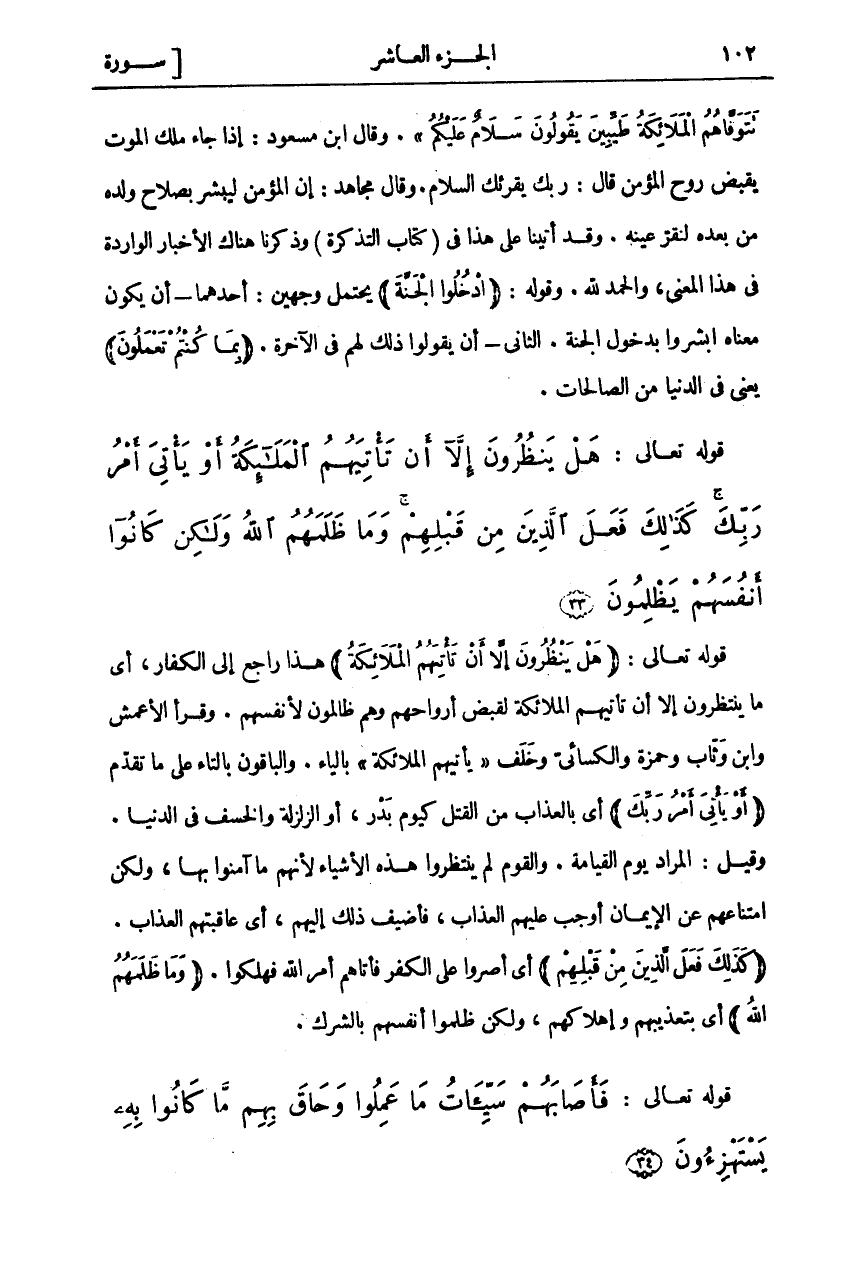 ١٠٢ الجزء العاشر [ سورة
تَتَوَفَّاهُمُ الْمَلَائِكَةُ طَيِّبِينَ يَقُولُونَ سَلَامٌ عَلَيْكُمُ » . وقال ابن مسعود : إذا جاء ملك الموت
يقبض روح المؤمن قال : ربك يقرئك السلام. وقال مجاهد : إن المؤمن ليبشر بصلاح ولده
من بعده لتقر عينه . وقد أتينا على هذا فى ( كتاب التذكرة ) وذكرنا هناك الأخبار الواردة
فى هذا المعنى، والحمد لله . وقوله : ﴿ ادْخُلُوا الْجَنَّةَ ﴾ يحتمل وجهين : أحدهما — أن يكون
معناه ابشروا بدخول الجنة . الثانى — أن يقولوا ذلك لهم فى الآخرة . ﴿ بِمَا كُنْتُمْ تَعْمَلُونَ ﴾
يعنى فى الدنيا من الصالحات .
قوله تعالى : هَلْ يَنظُرُونَ إِلَّآ أَن تَأْتِيَهُمُ ٱلْمَلَٰٓئِكَةُ أَوْ يَأْتِىَ أَمْرُ
رَبِّكَ ۚ كَذَٰلِكَ فَعَلَ ٱلَّذِينَ مِن قَبْلِهِمْ ۚ وَمَا ظَلَمَهُمُ ٱللَّهُ وَلَٰكِن كَانُوٓا
أَنفُسَهُمْ يَظْلِمُونَ ٣٣
قوله تعالى : ﴿ هَلْ يَنْظُرُونَ إلَّا أَنْ تَأْتِيَهُمُ الْمَلَائِكَةُ ﴾ هذا راجع إلى الكفار ، أى
ما ينتظرون إلا أن تأتيهم الملائكة لقبض أرواحهم وهم ظالمون لأنفسهم . وقرأ الأعمش
وابن وَثّاب وحمزة والكسائىّ وخَلَف « يأتيهم الملائكة » بالياء . والباقون بالتاء على ما تقدّم
﴿ أَوْ يَأْتِىَ أَمْرُ رَبِّكَ ﴾ أى بالعذاب من القتل كيوم بَدْر ، أو الزلزلة والخسف فى الدنيا .
وقيل : المراد يوم القيامة . والقوم لم ينتظروا هذه الأشياء لأنهم ما آمنوا بها ، ولكن
امتناعهم عن الإيمان أوجب عليهم العذاب ، فأضيف ذلك إليهم ، أى عاقبتهم العذاب .
﴿ كَذَلِكَ فَعَلَ الَّذِينَ مِنْ قَبْلِهِمْ ﴾ أى أصروا على الكفر فأتاهم أمر الله فهلكوا . ﴿ وَمَا ظَلَمَهُمُ
اللهُ ﴾ أى بتعذيبهم وإهلاكهم ، ولكن ظلموا أنفسهم بالشرك .
قوله تعالى : فَأَصَابَهُمْ سَيِّئَاتُ مَا عَمِلُوا وَحَاقَ بِهِم مَّا كَانُوا بِهِۦ
يَسْتَهْزِءُونَ ٣٤